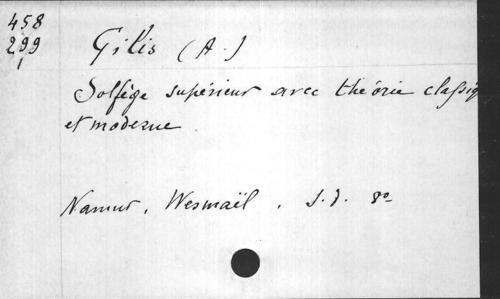 458
299
1
Gilis (A.)
Solfège supérieur avec théorie classiq
et moderne.
Namur, Wesmaël, s.d. 8o